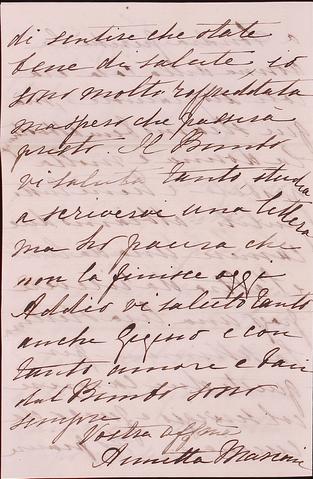 di sentire che state
bene di salute io
sono molto raffreddata
ma spero che passerà
presto. Il Bimbo
vi saluta tanto, studia
a scrivervi una lettera
ma ho paura che
non la finisce oggi
Addio vi saluto tanto
anche Gigino e con
tanto amore e baci
dal Bimbo sono
sempre
Vostra affma
Annetta